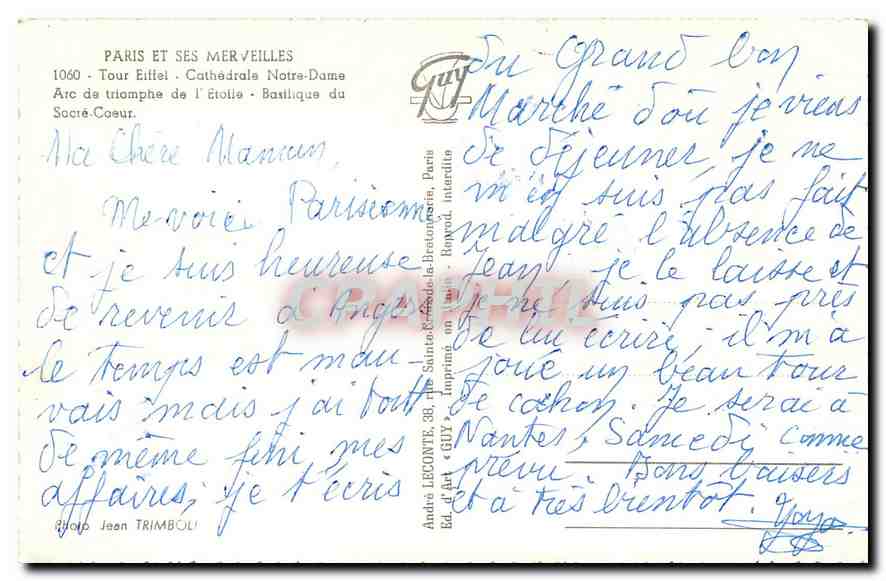 PARIS ET SES MERVEILLES
1060 - Tour Eiffel - Cathédrale Notre-Dame
Arc de triomphe de l'Étoile - Basilique du
Sacré-Coeur.
Ma Chère Maman,
Me voici Parisienne
et je suis heureuse
de revenir d'Angers
le temps est mau-
vais mais j'ai tout
de même fini mes
affaires; je t'écris
Photo Jean TRIMBOLI
Guy
André LECONTE, 38, rue Sainte-Croix-de-la-Bretonnerie, Paris
Ed. d'Art «GUY» - Imprimé en - Reprod. interdite
du Grand bon
Marché d'où je viens
de déjeuner, je ne
m'en suis pas fait
malgré l'absence de
Jean; je le laisse et
je ne suis pas près
de lui écrire; il m'a
joué un beau tour
de cochon. Je serai à
Nantes, Samedi comme
prévu. Bons baisers
et à très bientôt.
CPAPHIL